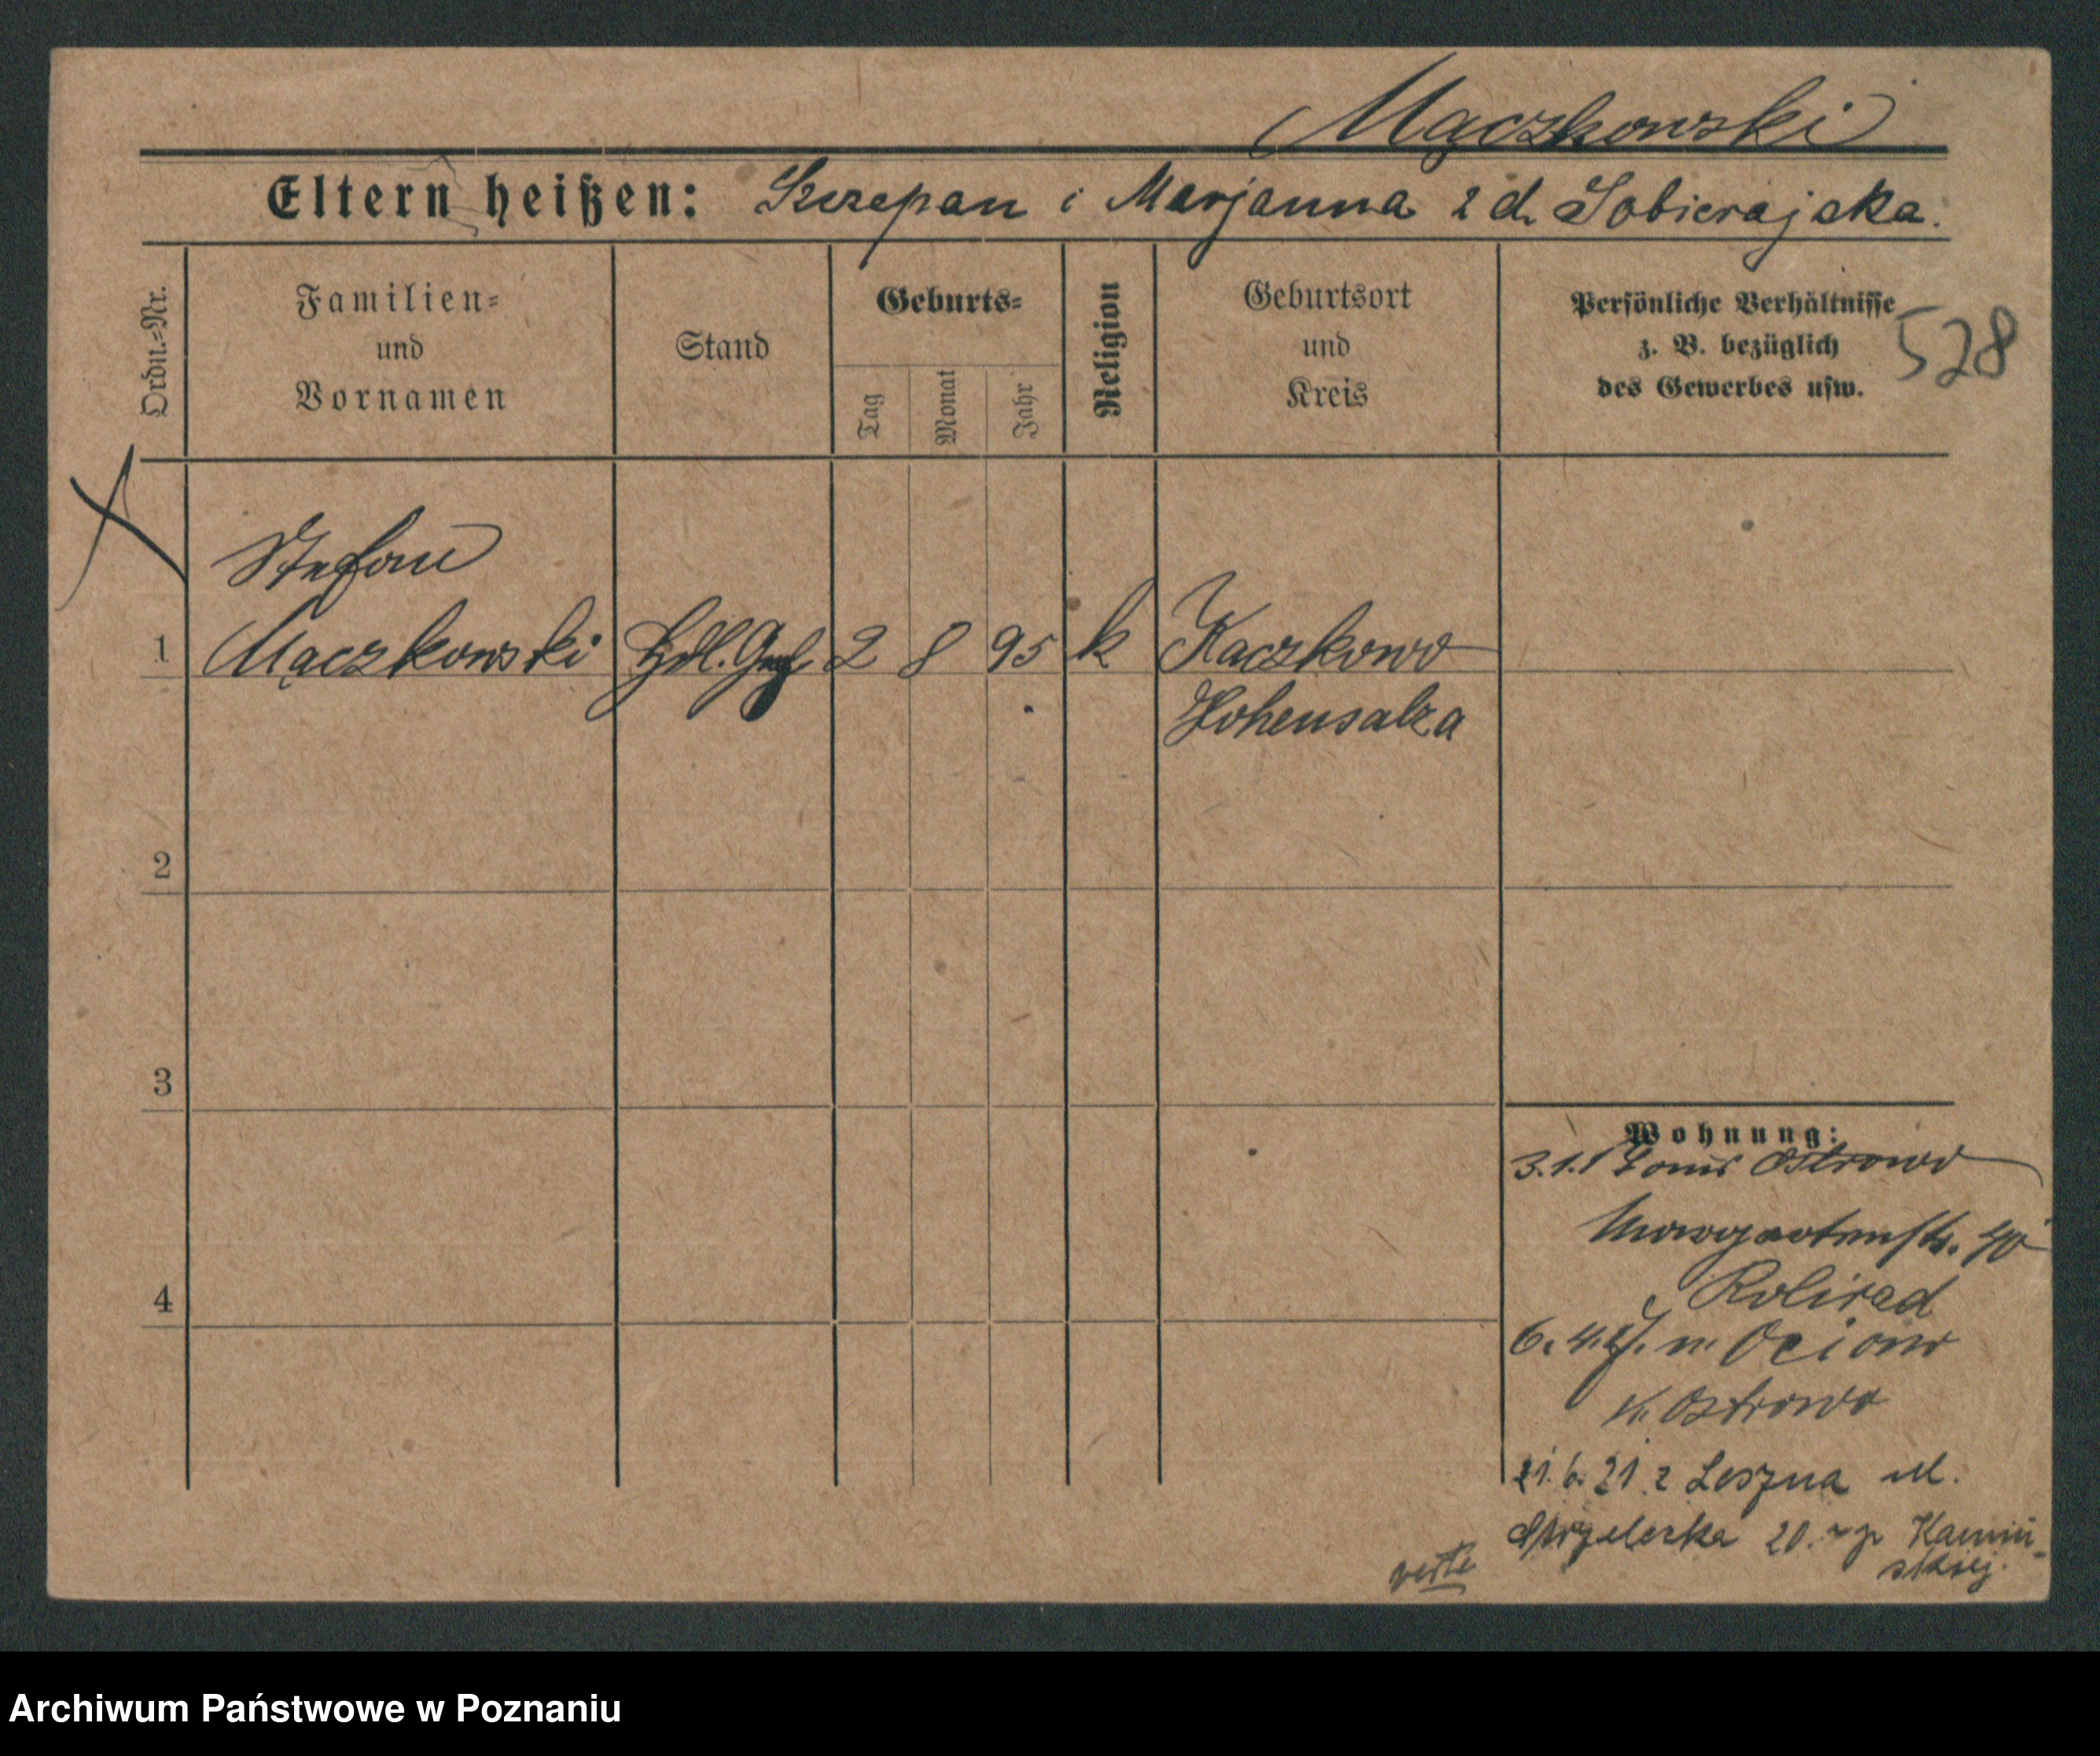 Mączkowski
Eltern heißen: Szczepan i Marjanna z d. Sobierajska.
Ordn.=Nr.
Familien=
und
Vornamen
Stand
Geburts=
Tag
Monat
Jahr
Religion
Geburtsort
und
Kreis
Persönliche Verhältnisse
z. B. bezüglich
des Gewerbes usw.
528
Stefan
1 Mączkowski Hdl. 2 8 95 k Kaczkowo
Hohensalza
2
3
4
Wohnung:
3.1. Ostrowo
Margaretenstr. 40
6. 4. Ociąż
k. Ostrowo
21. 6. 21 z Leszna ul.
Strzelecka 20. Kamiń-
skiej.
verte
Archiwum Państwowe w Poznaniu